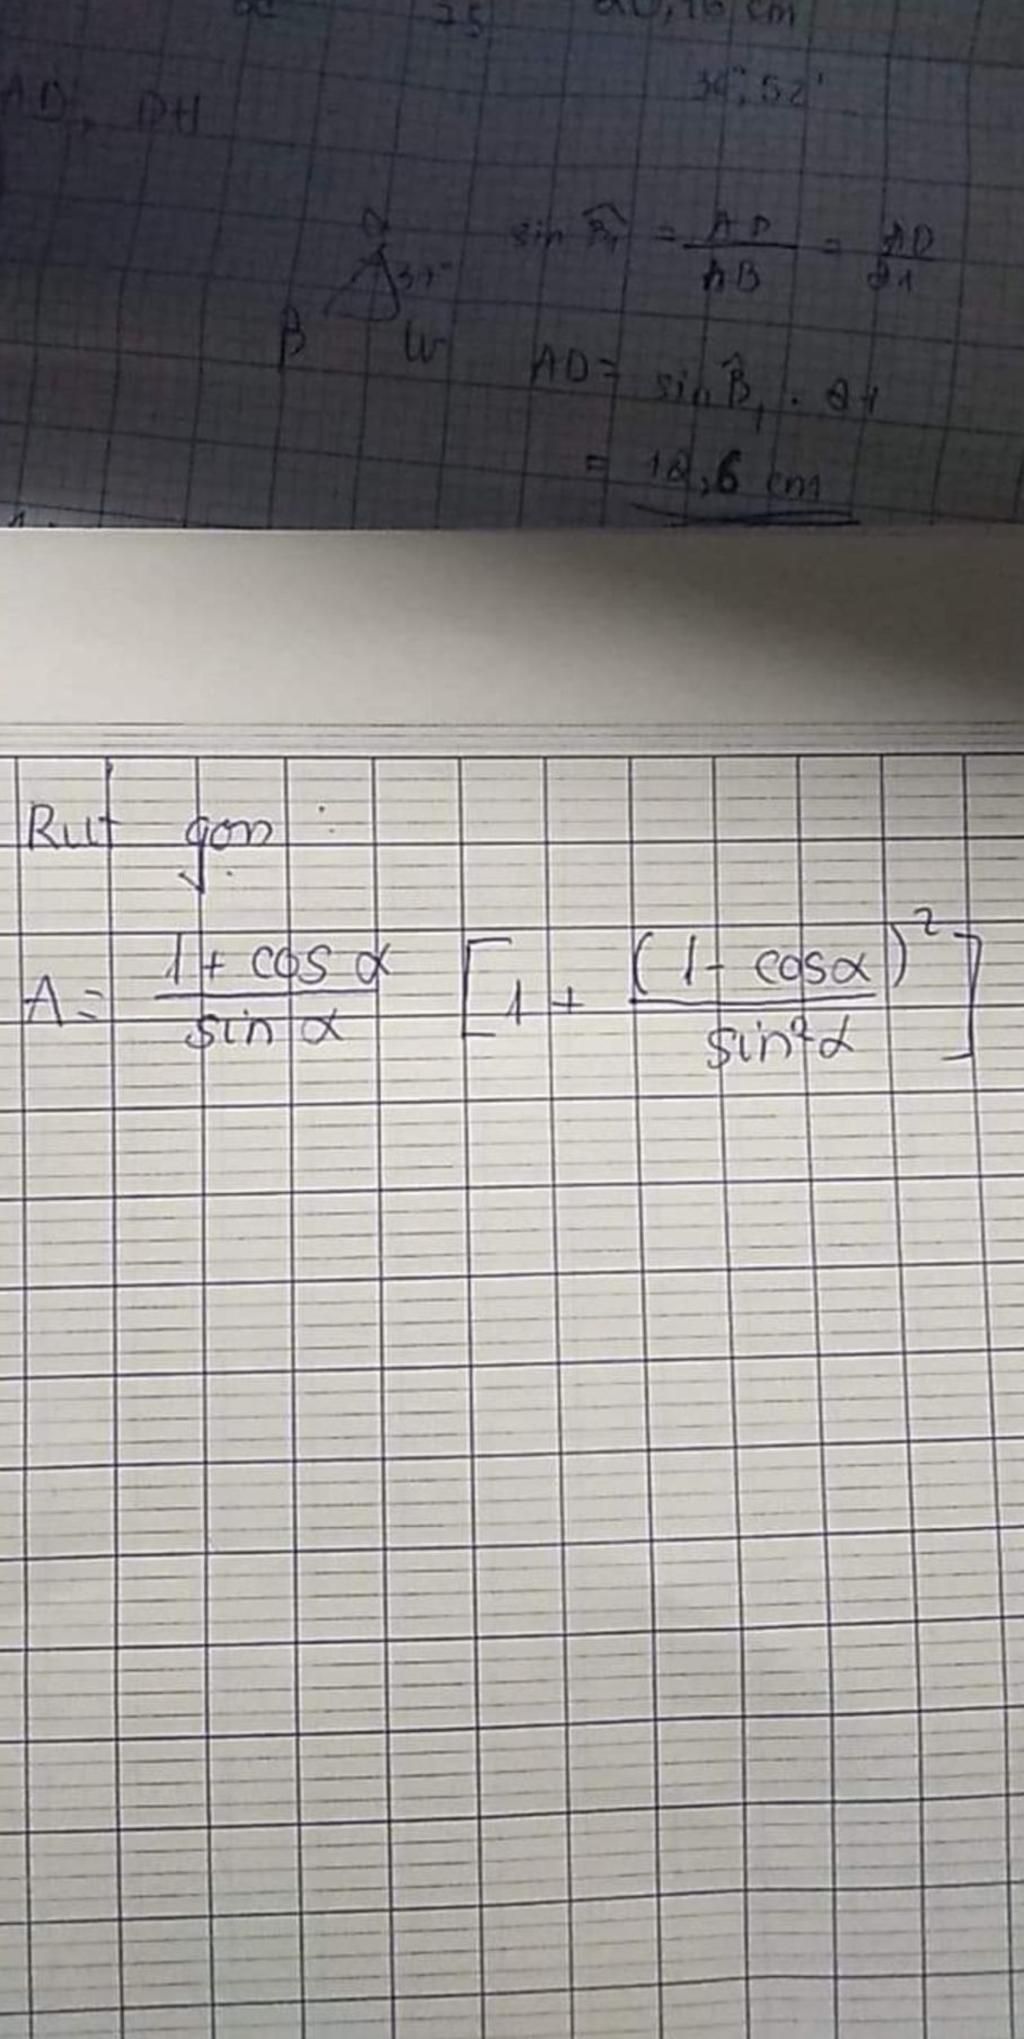 25
cm
AD, DH
sin B̂₁ = AD/AB = AD/21
B
AD = sin B̂₁ . 21
= 12,6 cm
Rut gọn :
A = (1 + cos α)/(sin α) [1 + (1 - cosα)²/(sin²α)]